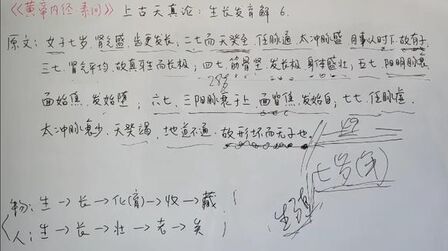 《《黄帝内经·素问》》上古天真论：生长发育解 6.
原文：女子七岁，肾气盛，齿更发长，二七而天癸至，任脉通，太冲脉盛，月事以时下，故有子
三七，肾气平均，故真牙生而长极，四七，筋骨坚，发长极，身体盛壮，五七，阳明脉衰
28岁
面始焦，发始堕，六七，三阳脉衰于上，面皆焦，发始白，七七，任脉虚
太冲脉衰少，天癸竭，地道不通，故形坏而无子也。
七岁
物：生→长→化(育)→收→藏
人：生→长→壮→老→矣